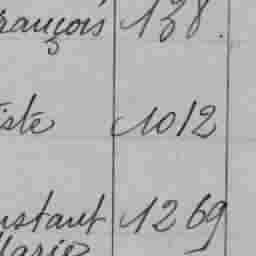 rançois 138.
iste 1012
nstant 1269
Marie